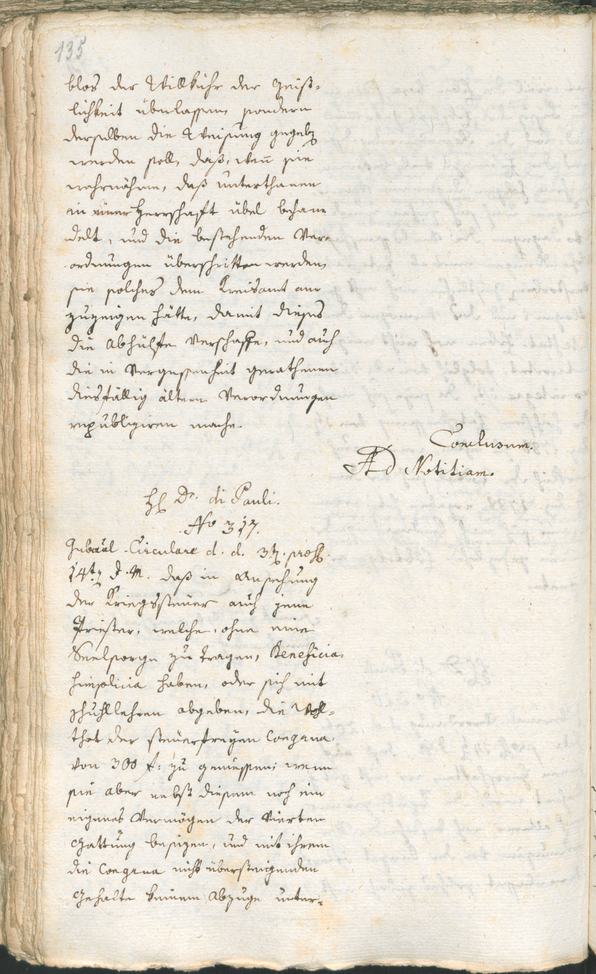 135
blos der Willkühr der Geist-
lichkeit überlassen, sondern
derselben die Weisung gegeben
werden soll, daß, wenn sie
wahrnähmen, daß Unterthanen
in einer Herrschaft übel behan-
delt, und die bestehenden Ver-
ordnungen überschritten werden,
sie solches dem Kreisamt an-
zuzeigen hätte, damit dieses
die Abhülfe verschaffe, und auch
die in Vergessenheit gerathenen
diesfällig ältern Verordnungen
republiziren mache.
Conclusum.
Ad Notitiam.
H. Dr. di Pauli.
No 317.
Gubernal-Circulare d. d. 3t. præs.
14t. d. M. daß in Ansehung
der Kriegssteuer auch jene
Priester, welche, ohne eine
Seelsorge zu tragen, Beneficia
simplicia haben, oder sich mit
Schullehren abgeben, die Wohl-
that der steuerfreyen Congrua
von 300 f: zu geniessen; wenn
sie aber nebst diesem noch ein
eigenes Vermögen der vierten
Gattung besizen, und mit ihrem
die Congrua nicht übersteigenden
Gehalte keinem Abzuge unter-